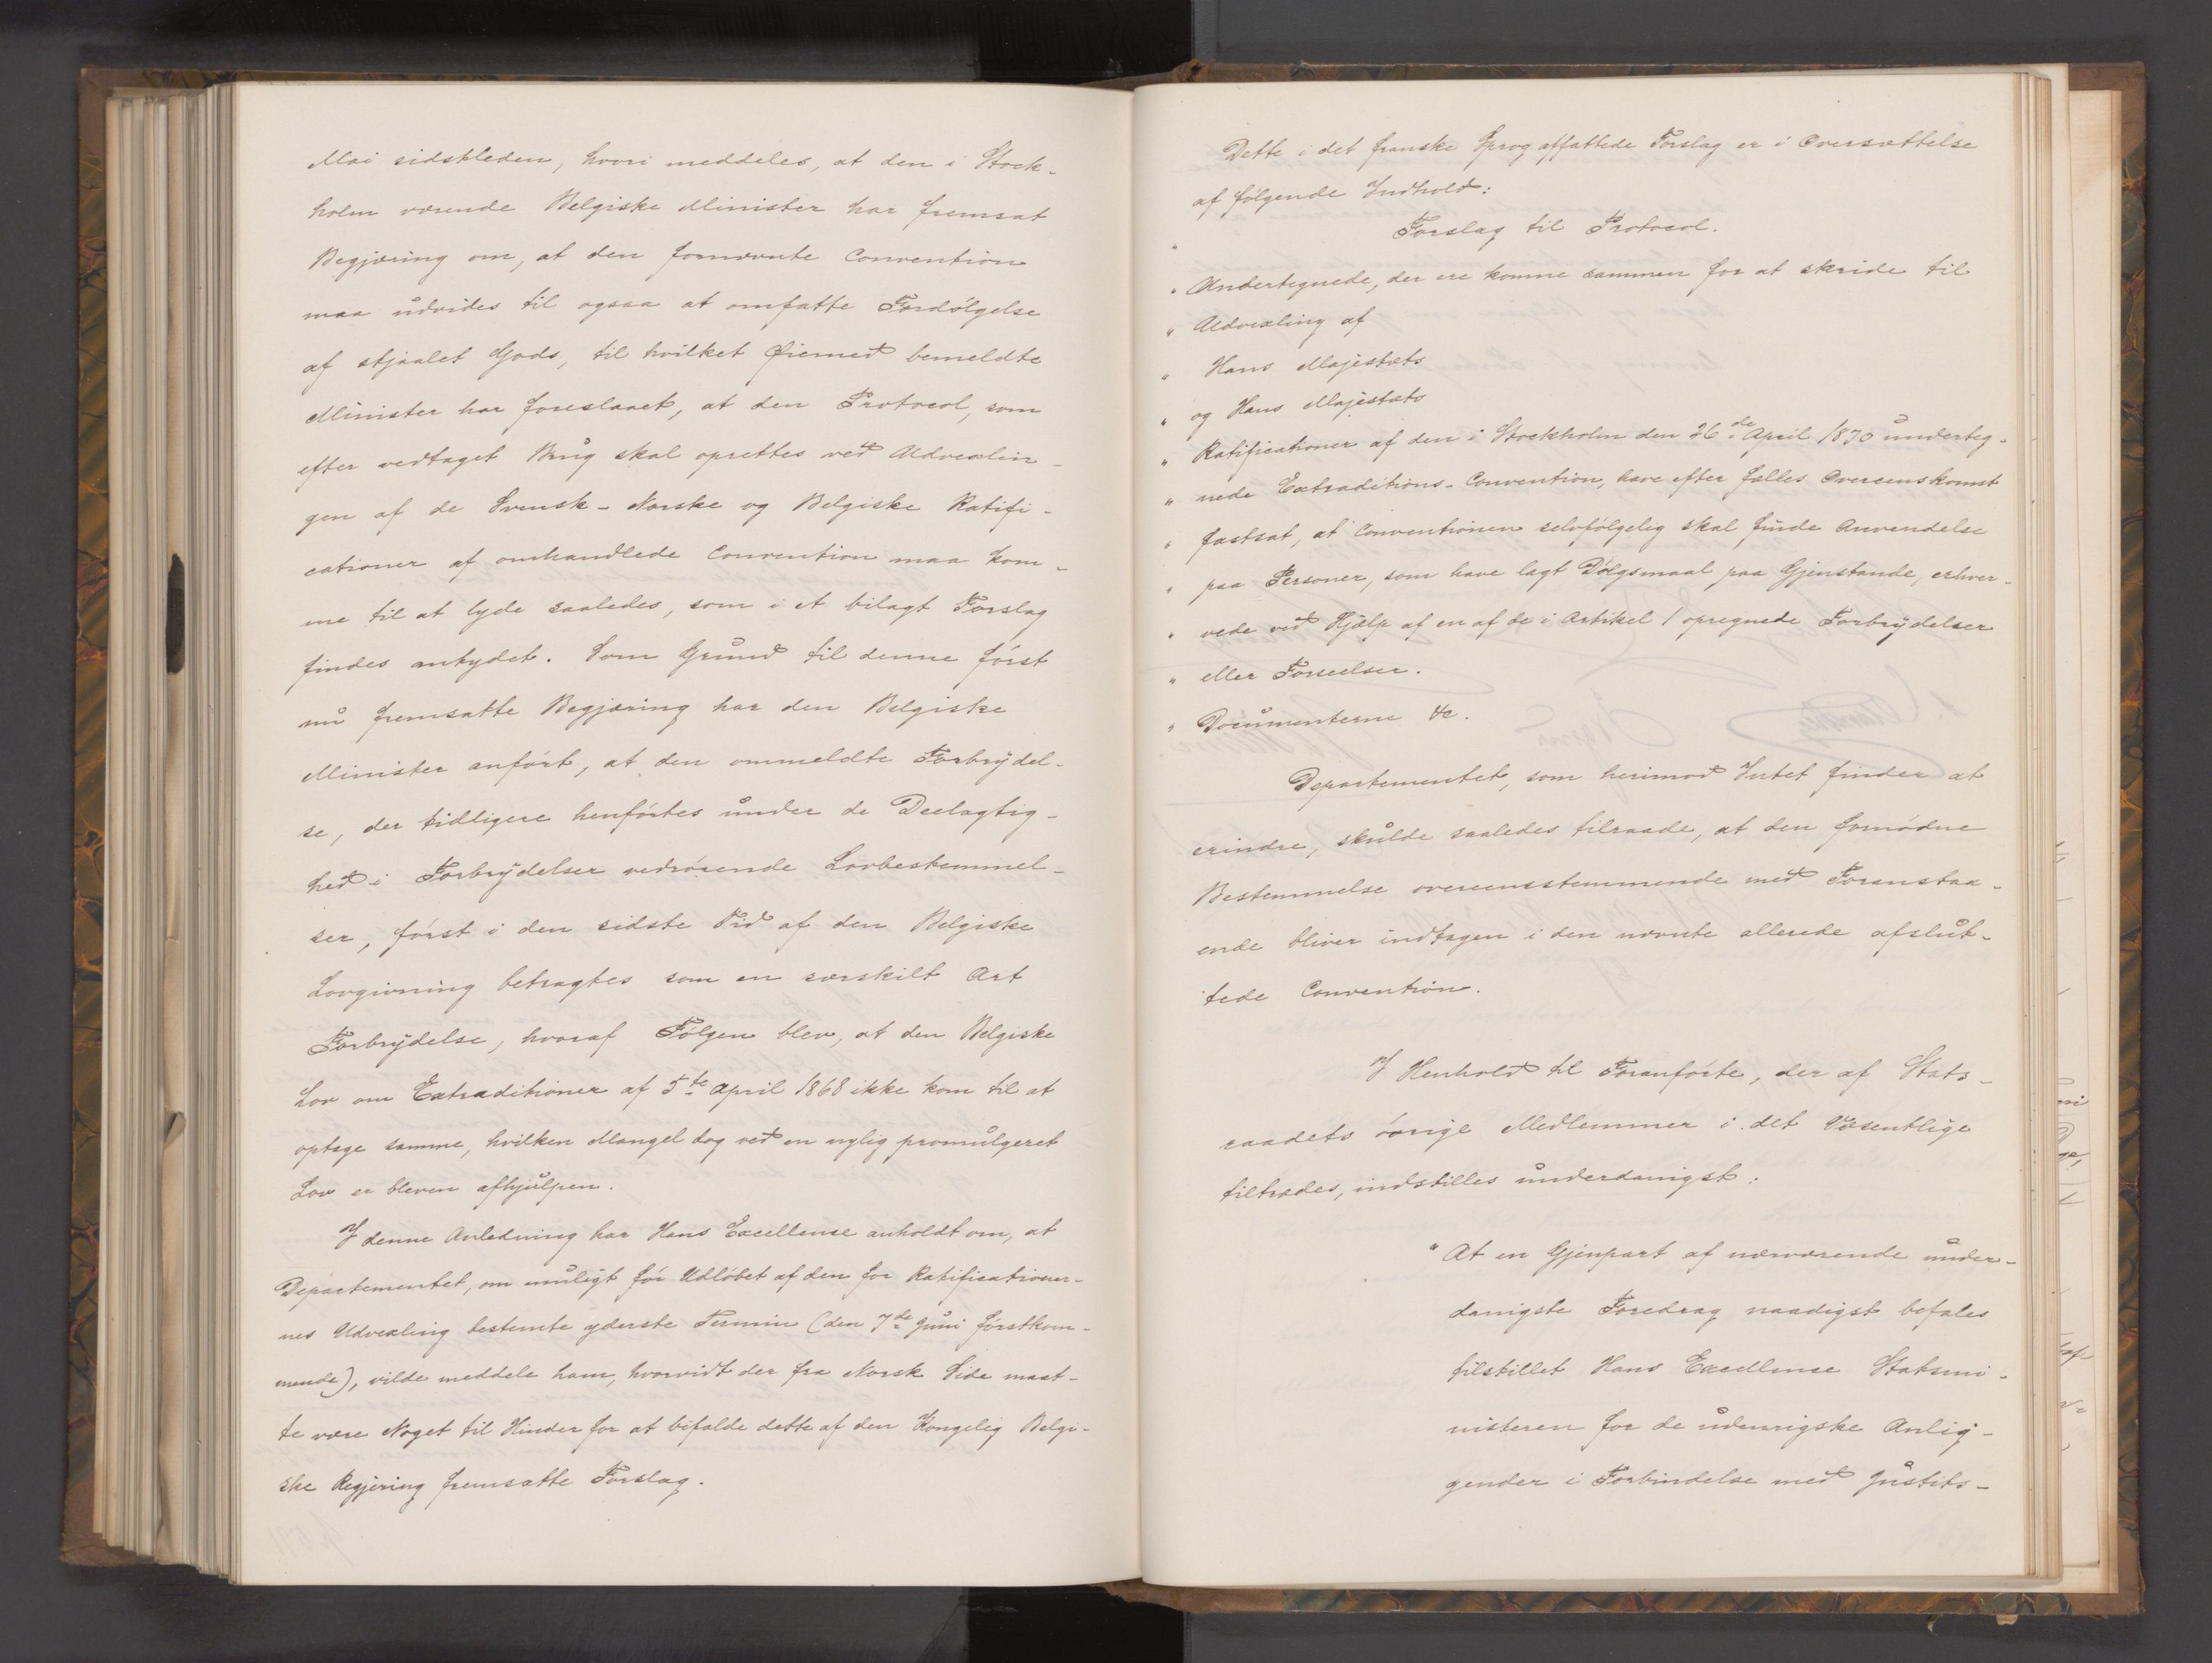 Mai sidstleden, hvori meddeles, at den i Stock-
holm værende Belgiske Minister har fremsat
Begjæring om, at den fornævnte Convention
maa udvides til ogsaa at omfatte Fordølgelse
af stjaalet Gods, til hvilket Øiemed bemeldte
Minister har foreslaaet, at den Protocol, som
efter vedtaget Brug skal oprettes ved Udvexlin-
gen af de Svensk-Norske og Belgiske Ratifi-
cationer af omhandlede Convention maa kom-
me til at lyde saaledes, som i et bilagt Forslag
findes antydet. Som Grund til denne først
nu fremsatte Begjæring har den Belgiske
Minister anført, at den ommeldte Forbrydel-
se, der tidligere henførtes under de Deelagtig-
hed i Forbrydelser vedrørende Lovbestemmel-
ser, først i den sidste Tid af den Belgiske
Lovgivning betragtes som en særskilt Art
Forbrydelse, hvoraf Følgen blev, at den Belgiske
Lov om Extraditioner af 5te April 1868 ikke kom til at
optage samme, hvilken Mangel dog ved en nylig promulgeret
Lov er bleven afhjulpen.
I denne Anledning har Hans Excellense anholdt om, at
Departementet, om muligt før Udløbet af den for Ratificationer-
nes Udvexling bestemte yderste Termin (den 7de Juni førstkom-
mende), vilde meddele ham, hvorvidt der fra Norsk Side maat-
te være Noget til Hinder for at bifalde dette af den Kongelig Belgi-
ske Regjering fremsatte Forslag.
Dette i det franske Sprog affattede Forslag er i Oversættelse
af følgende Indhold:
" Forslag til Protocol.
" Undertegnede, der ere komne sammen for at skride til
" Udvexling af
" Hans Majestæts
" og Hans Majestæts
" Ratificationer af den i Stockholm den 26de April 1870 underteg-
" nede Extraditions-Convention, have efter fælles Overeenskomst
" fastsat, at Conventionen selvfølgelig skal finde Anvendelse
" paa Personer, som have lagt Dølgsmaal paa Gjenstande, erhver-
" vede ved Hjælp af en af de i Artikel 1 opregnede Forbrydelser
" eller Forseelser.
" Documenterne &c.
Departementet, som herimod Intet finder at
erindre, skulde saaledes tilraade, at den fornødne
Bestemmelse overeensstemmende med Foranstaa-
ende bliver indtagen i den nævnte allerede afslut-
tede Convention.
I Henhold til Foranførte, der af Stats-
raadets øvrige Medlemmer i det Væsentlige
tiltrædes, indstilles underdanigst:
"At en Gjenpart af nærværende under-
danigste Foredrag naadigst befales
tilstillet Hans Excellense Statsmi-
nisteren for de udenrigske Anlig-
gender i Forbindelse med Justits-